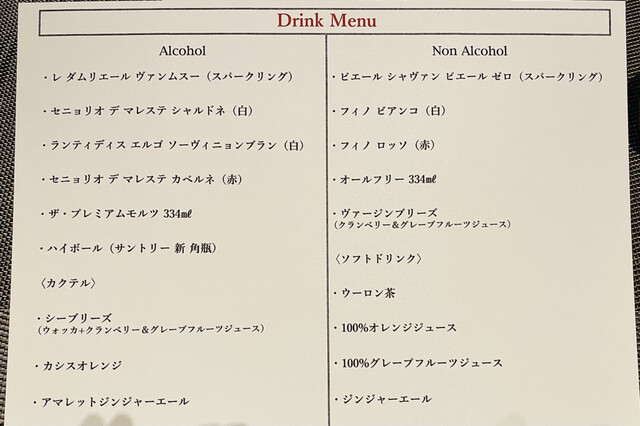 Drink Menu
Alcohol
・レ ダムリエール ヴァンムスー（スパークリング）
・セニョリオ デ マレステ シャルドネ（白）
・ランティディス エルゴ ソーヴィニョンブラン（白）
・セニョリオ デ マレステ カベルネ（赤）
・ザ・プレミアムモルツ 334㎖
・ハイボール（サントリー 新 角瓶）
〈カクテル〉
・シーブリーズ
（ウォッカ+クランベリー＆グレープフルーツジュース）
・カシスオレンジ
・アマレットジンジャーエール
Non Alcohol
・ピエール シャヴァン ピエール ゼロ（スパークリング）
・フィノ ビアンコ（白）
・フィノ ロッソ（赤）
・オールフリー 334㎖
・ヴァージンブリーズ
（クランベリー＆グレープフルーツジュース）
〈ソフトドリンク〉
・ウーロン茶
・100%オレンジジュース
・100%グレープフルーツジュース
・ジンジャーエール